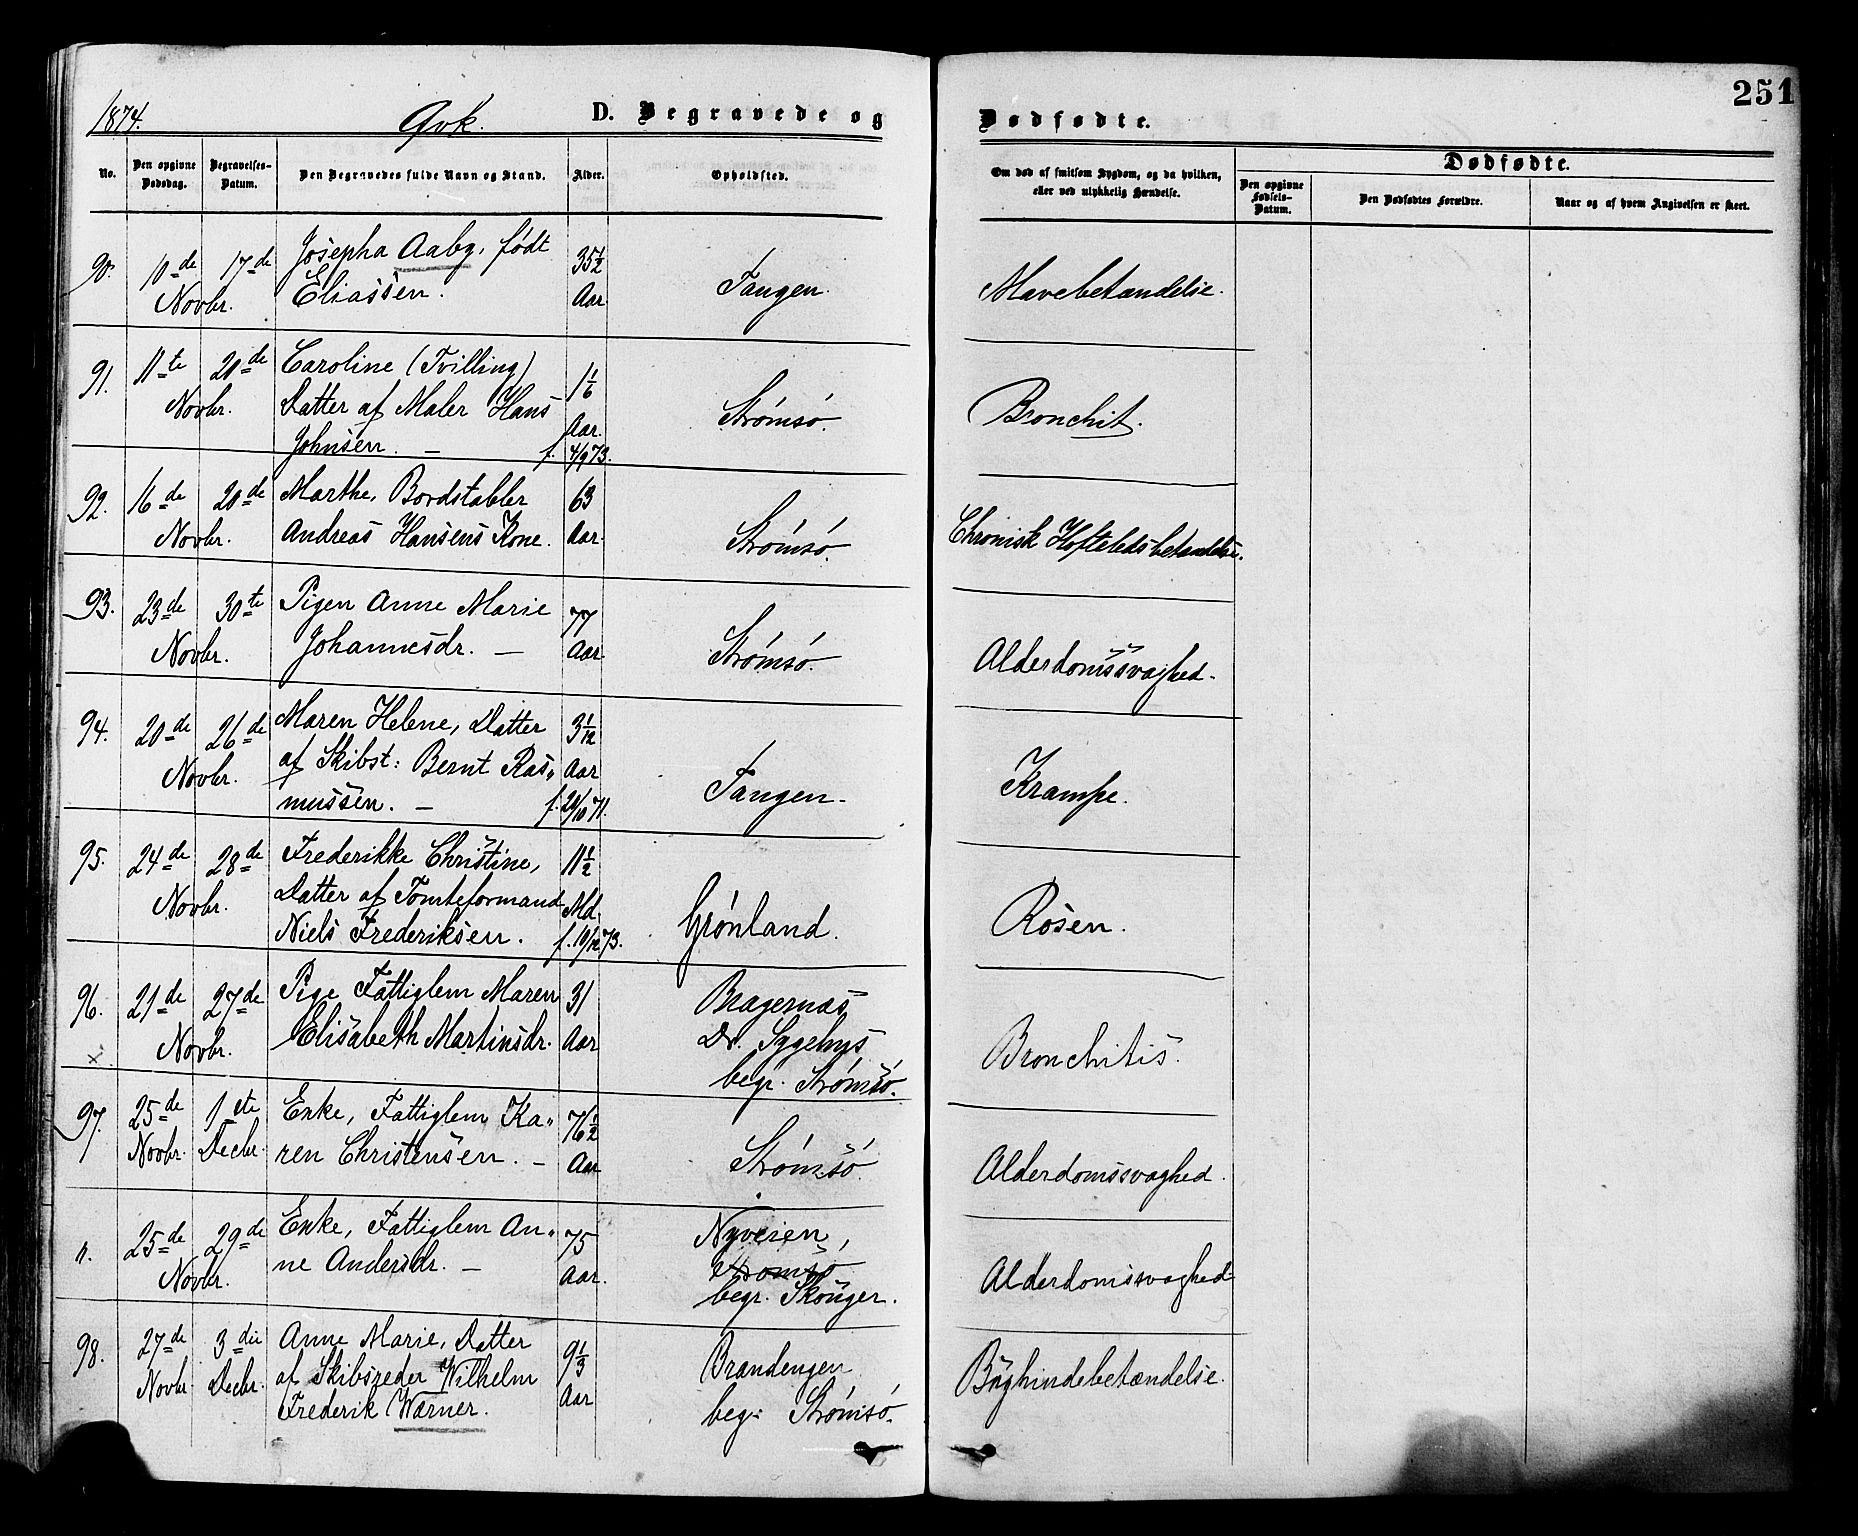 251
1874.
Qvk.
D. Begravede og
Dødfødte.
No.
Den opgivne Dødsdag.
Begravelses-Datum.
Den Begravedes fulde Navn og Stand.
Alder.
Opholdsted.
Om død af smitsom Sygdom, og da hvilken,
eller ved ulykkelig Hændelse.
Dødfødte.
Den opgivne Fødsels-Datum.
Den Dødfødtes Forældre.
Naar og af hvem Angivelsen er skeet.
90. 10de 17de Novbr.
Josepha Aaby, født
Eliassen.
35 1/2 Aar
Tangen.
Mavebetændelse.
91. 11te 20de Novbr.
Caroline (Tvilling)
Datter af Maler Hans
Johnsen. — f. 4/9 73.
1 1/6 Aar.
Strømsø.
Bronchit.
92. 16de 20de Novbr.
Marthe, Bordstabler
Andreas Hansens Kone.
63 Aar.
Strømsø.
Chronisk Hofteledsbetændelse.
93. 23de 30te Novbr.
Pigen Anne Marie
Johannesdr. —
77 Aar
Strømsø.
Alderdomssvaghed.
94. 20de 26de Novbr.
Maren Helene, Datter
af Skibst: Bernt Ras„
mussen. — f. 20/10 71.
3 1/12 Aar
Tangen.
Krampe.
95. 24de 28de Novbr.
Frederikke Christine,
Datter af Tomteformand
Niels Frederiksen. f. 10/12 73.
11 1/2 Md.
Grønland.
Rosen.
96. 21de 27de Novbr.
Pige Fattiglem Maren
Elisabeth Martinsdr.
31 Aar
Bragernæs
Dr. Sygehus
begr. Strømsø.
Bronchitis.
97. 25de Novbr. 1ste Decbr.
Enke, Fattiglem Ka„
ren Christensen. —
76 1/2 Aar
Strømsø.
Alderdomssvaghed.
„. 25de 29de Novbr.
Enke, Fattiglem An„
ne Andersdr. —
75 Aar.
Nyveien,
Strømsø
begr. Skouger.
Alderdomssvaghed
98. 27de Novbr. 3die Decbr.
Anne Marie, Datter
af Skibsreder Wilhelm
Frederik Warner.
9 1/3 Aar
Brandengen
begr. Strømsø.
Bughindebetændelse.